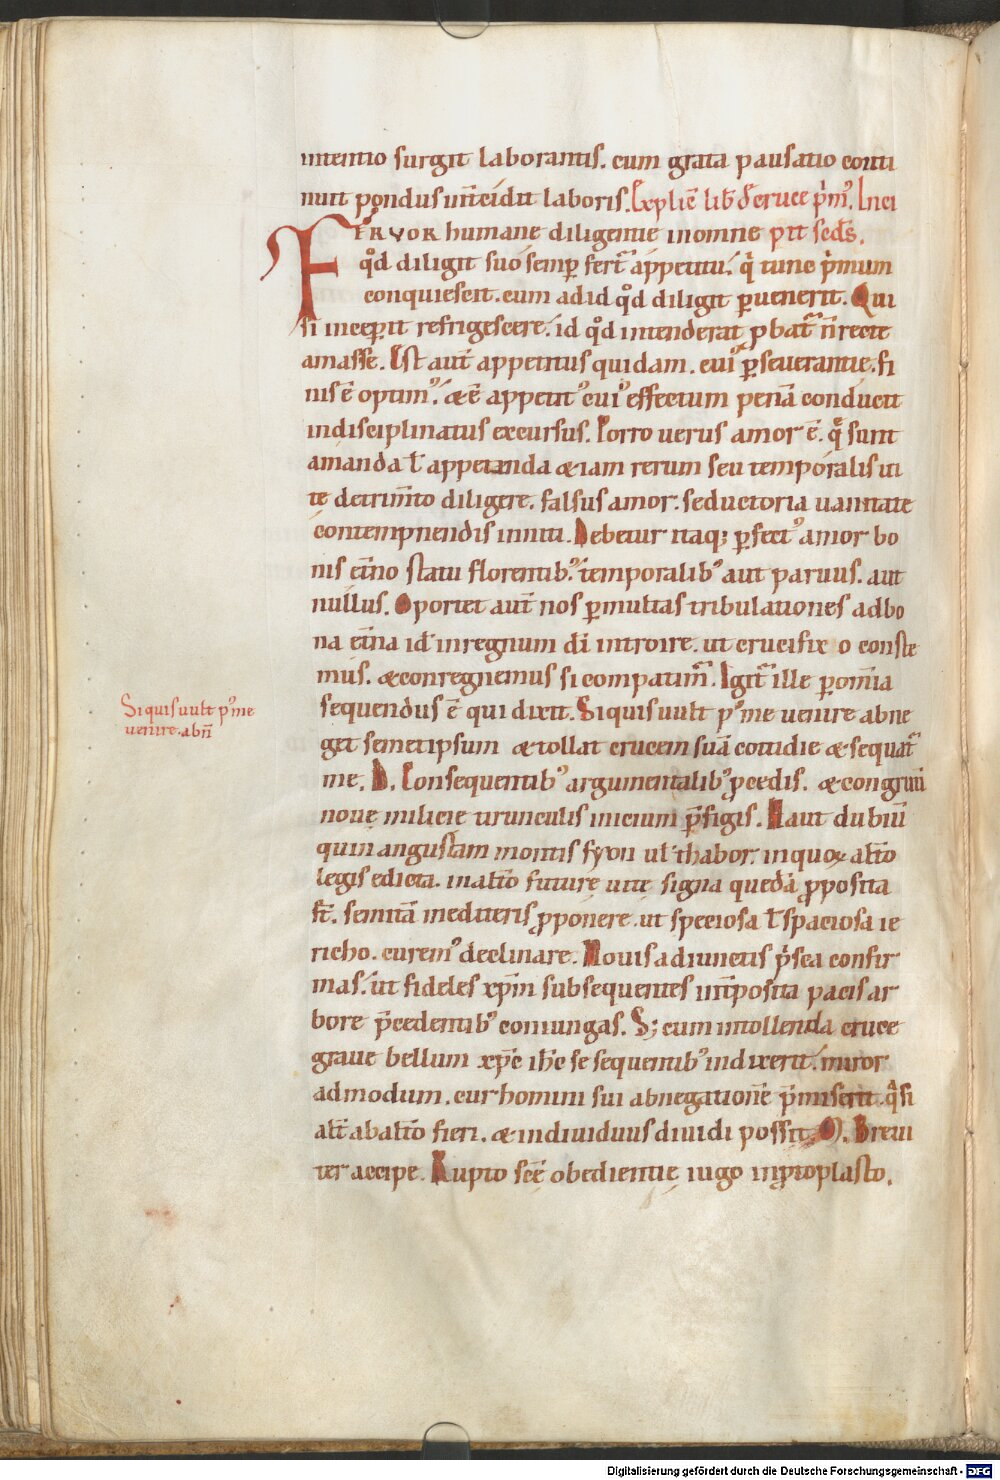 intentio surgit laborantis. cum grata pausatio conti
nuit pondus int̄cidit laboris. Explic̄ lib̄ de cruce p̍m᷒. Inci
FERVOR humane diligentie in omne pit sec̄ds.
qd̄ diligit suo semp̲ fert᷒ appetitu. q̍ tunc p̍mum
conquiescit. cum ad id qd̄ diligit p̲uenerit. Qui
si incep̲it refrigescere. id qd̄ intenderat p̲bat᷒ n̄ recte
amasse. Est aut̄ appetitus quidam. cui᷒ p̲seuerantie. fi
nis ē optim᷒. & ē appetit᷒ cui᷒ effectum penā conducit
indisciplinatus excursus. Porro uerus amor ē. q̄ sunt
amanda ł appetanda & iam rerum seu temporalis ui
tę detrim̄to diligere. falsus amor. seductoria uanitate
contempnendis inniti. Debetur itaq; p̲fect᷒ amor bo
nis et̄no statu florentib᷒. temporalib᷒ aut paruus. aut
nullus. Oportet aut̄ nos p̲ multas tribulationes ad bo
na et̄na id ÷ in regnum dī introire. ut crucifixo conste
mus. & conregnemus si compatim̄᷒. Igit᷒ ille p̲ om̄ia
sequendus ē qui dixit. Si quis uult p᷒ me uenire abne
get semetipsum & tollat crucem suā cottidie & sequat᷒
me. D. Consequentib᷒ argumentalib᷒ p̲cedis. & congruū
nouę milicie tirunculis inicium p̄figis. Haut dubiū
quin angustam montis syon uł thabor. in quoꝝ alt̄o
legis edicta. in alt̄o futurę uitę signa quedā p̲posita
st̄. semitā mediteris p̲ponere. ut speciosa ł spaciosa ie
richo. curem᷒ declinare. Nouis adiunctis p̍sca confir
mas. ut fideles xp̄m subsequentes int̄posita pacis ar
bore p̄cedentib᷒ coniungas. S; cum in tollenda cruce
graue bellum xp̄c ih̄c se sequentib᷒ indixerit. miror
admodum. cur homini sui abnegationē p̄miserit. q̍si
alt̄ ab alt̄o fieri. & indiuiduus diuidi possit. O. Breui
ter accipe. Rupto sc̄ę obedientię iugo in p̲toplasto.
Si quis uult p᷒ me
uenire. abn̄
Digitalisierung gefördert durch die Deutsche Forschungsgemeinschaft - DFG